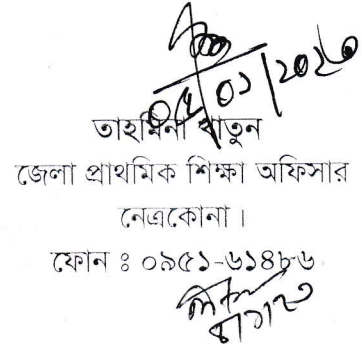 ০৫/০১/২০২৩
তাহমিনা খাতুন
জেলা প্রাথমিক শিক্ষা অফিসার
নেত্রকোনা।
ফোন ঃ ০৯৫১-৬১৪৮৬